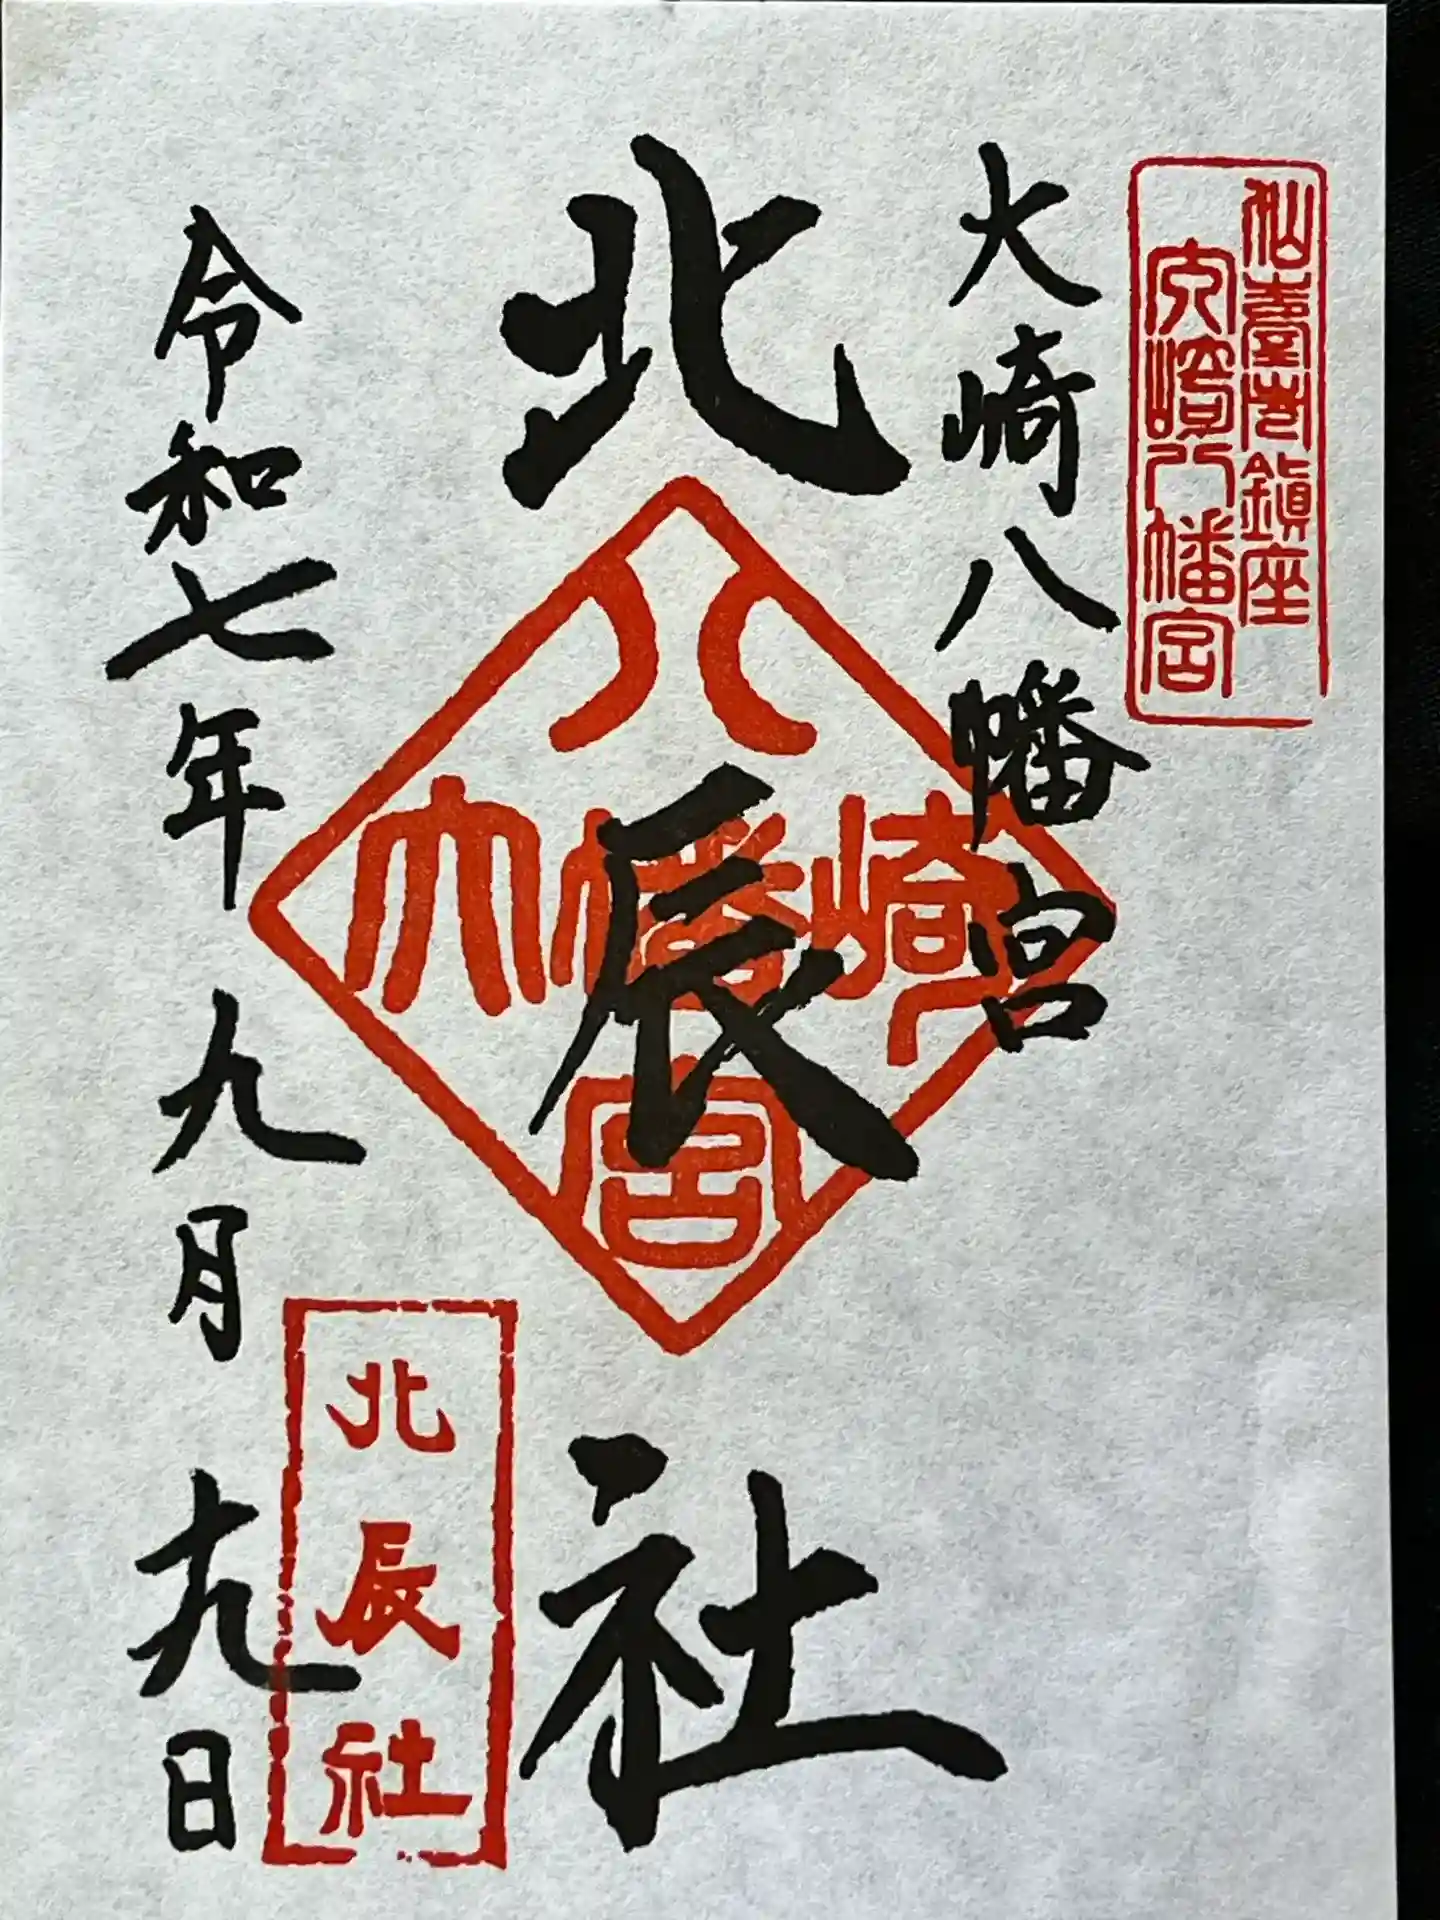 仙臺總鎮座
大崎八幡宮
大崎八幡宮
北辰社
八
大幡崎
宮
北辰社
令和七年九月十九日